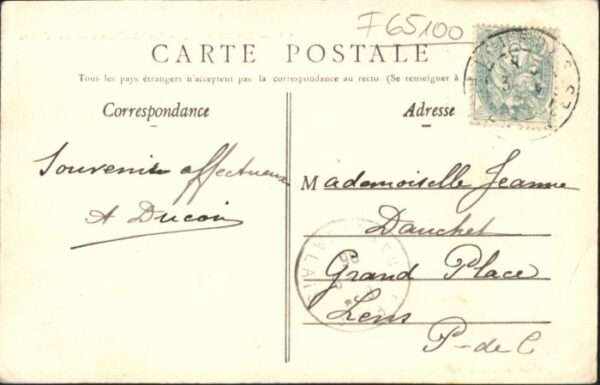 F65100
CARTE POSTALE
Tous les pays étrangers n'acceptent pas la correspondance au recto (Se renseigner à
Correspondance
Adresse
Souvenir affectueux
A Ducoin
Mademoiselle Jeanne
Dauchet
Grand Place
Lens
P-de C